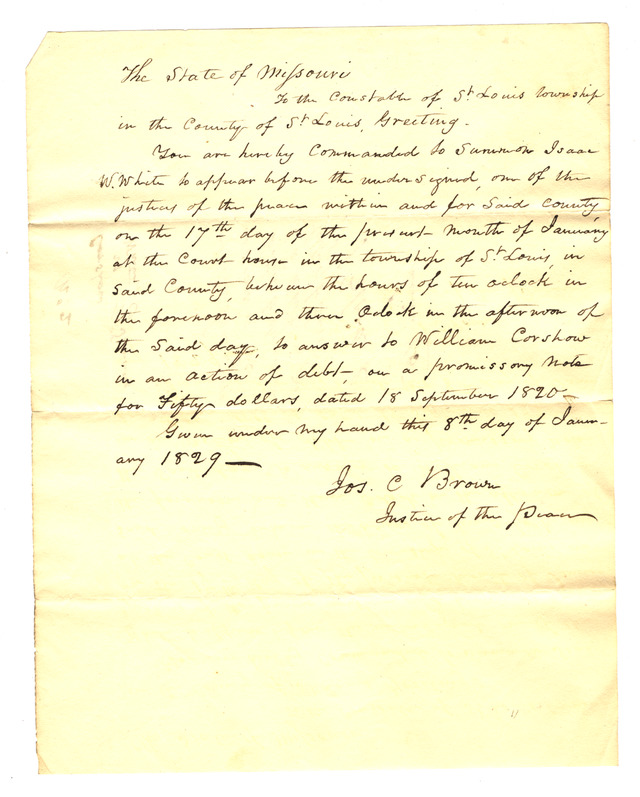 The State of Missouri
To the Constable of St Louis township
in the County of St Louis, Greeting.
You are hereby Commanded to Summon Isaac
W. White to appear before the undersigned, one of the
justices of the peace within and for Said County
on the 17th day of the present month of January
at the Court house in the township of St Louis, in
Said County, between the hours of ten oclock in
the forenoon and three Oclock in the afternoon of
the Said day, to answer to William Corshow
in an action of debt, on a promissory Note
for Fifty dollars, dated 18 September 1820-
Given under my hand this 8th day of Janu-
ary 1829—
Jos. C Brown
Justice of the Peace